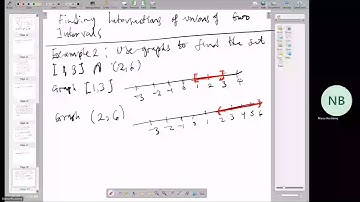 Finding Intersections of unions of two
Intervals
Example 2: Use graphs to find the set
[1,3] ∩ (2,6)
Graph [1,3]
-3 -2 -1 0 1 2 3 4
Graph (2,6)
-3 -2 -1 0 1 2 3 4 5 6
NB